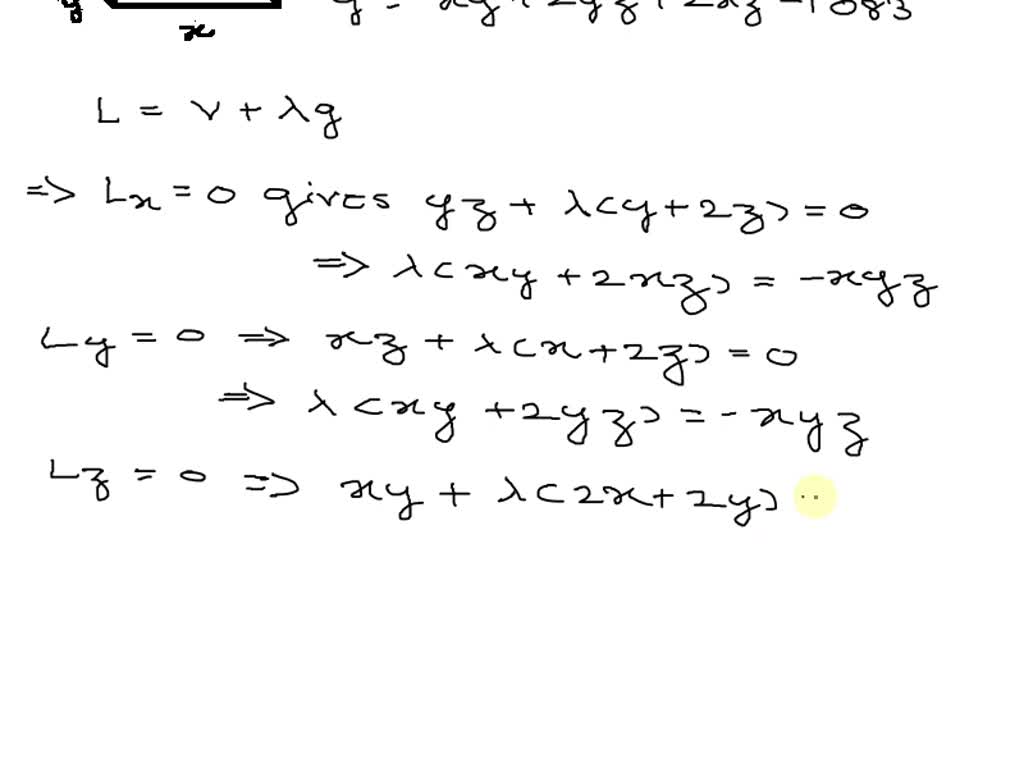 y x g = xy + 2yz + 2xz - 1083
L = v + λg
=> Lx = 0 gives yz + λ(y + 2z) = 0
=> λ(xy + 2xz) = -xyz
Ly = 0 => xz + λ(x + 2z) = 0
=> λ(xy + 2yz) = -xyz
Lz = 0 => xy + λ(2x + 2y)